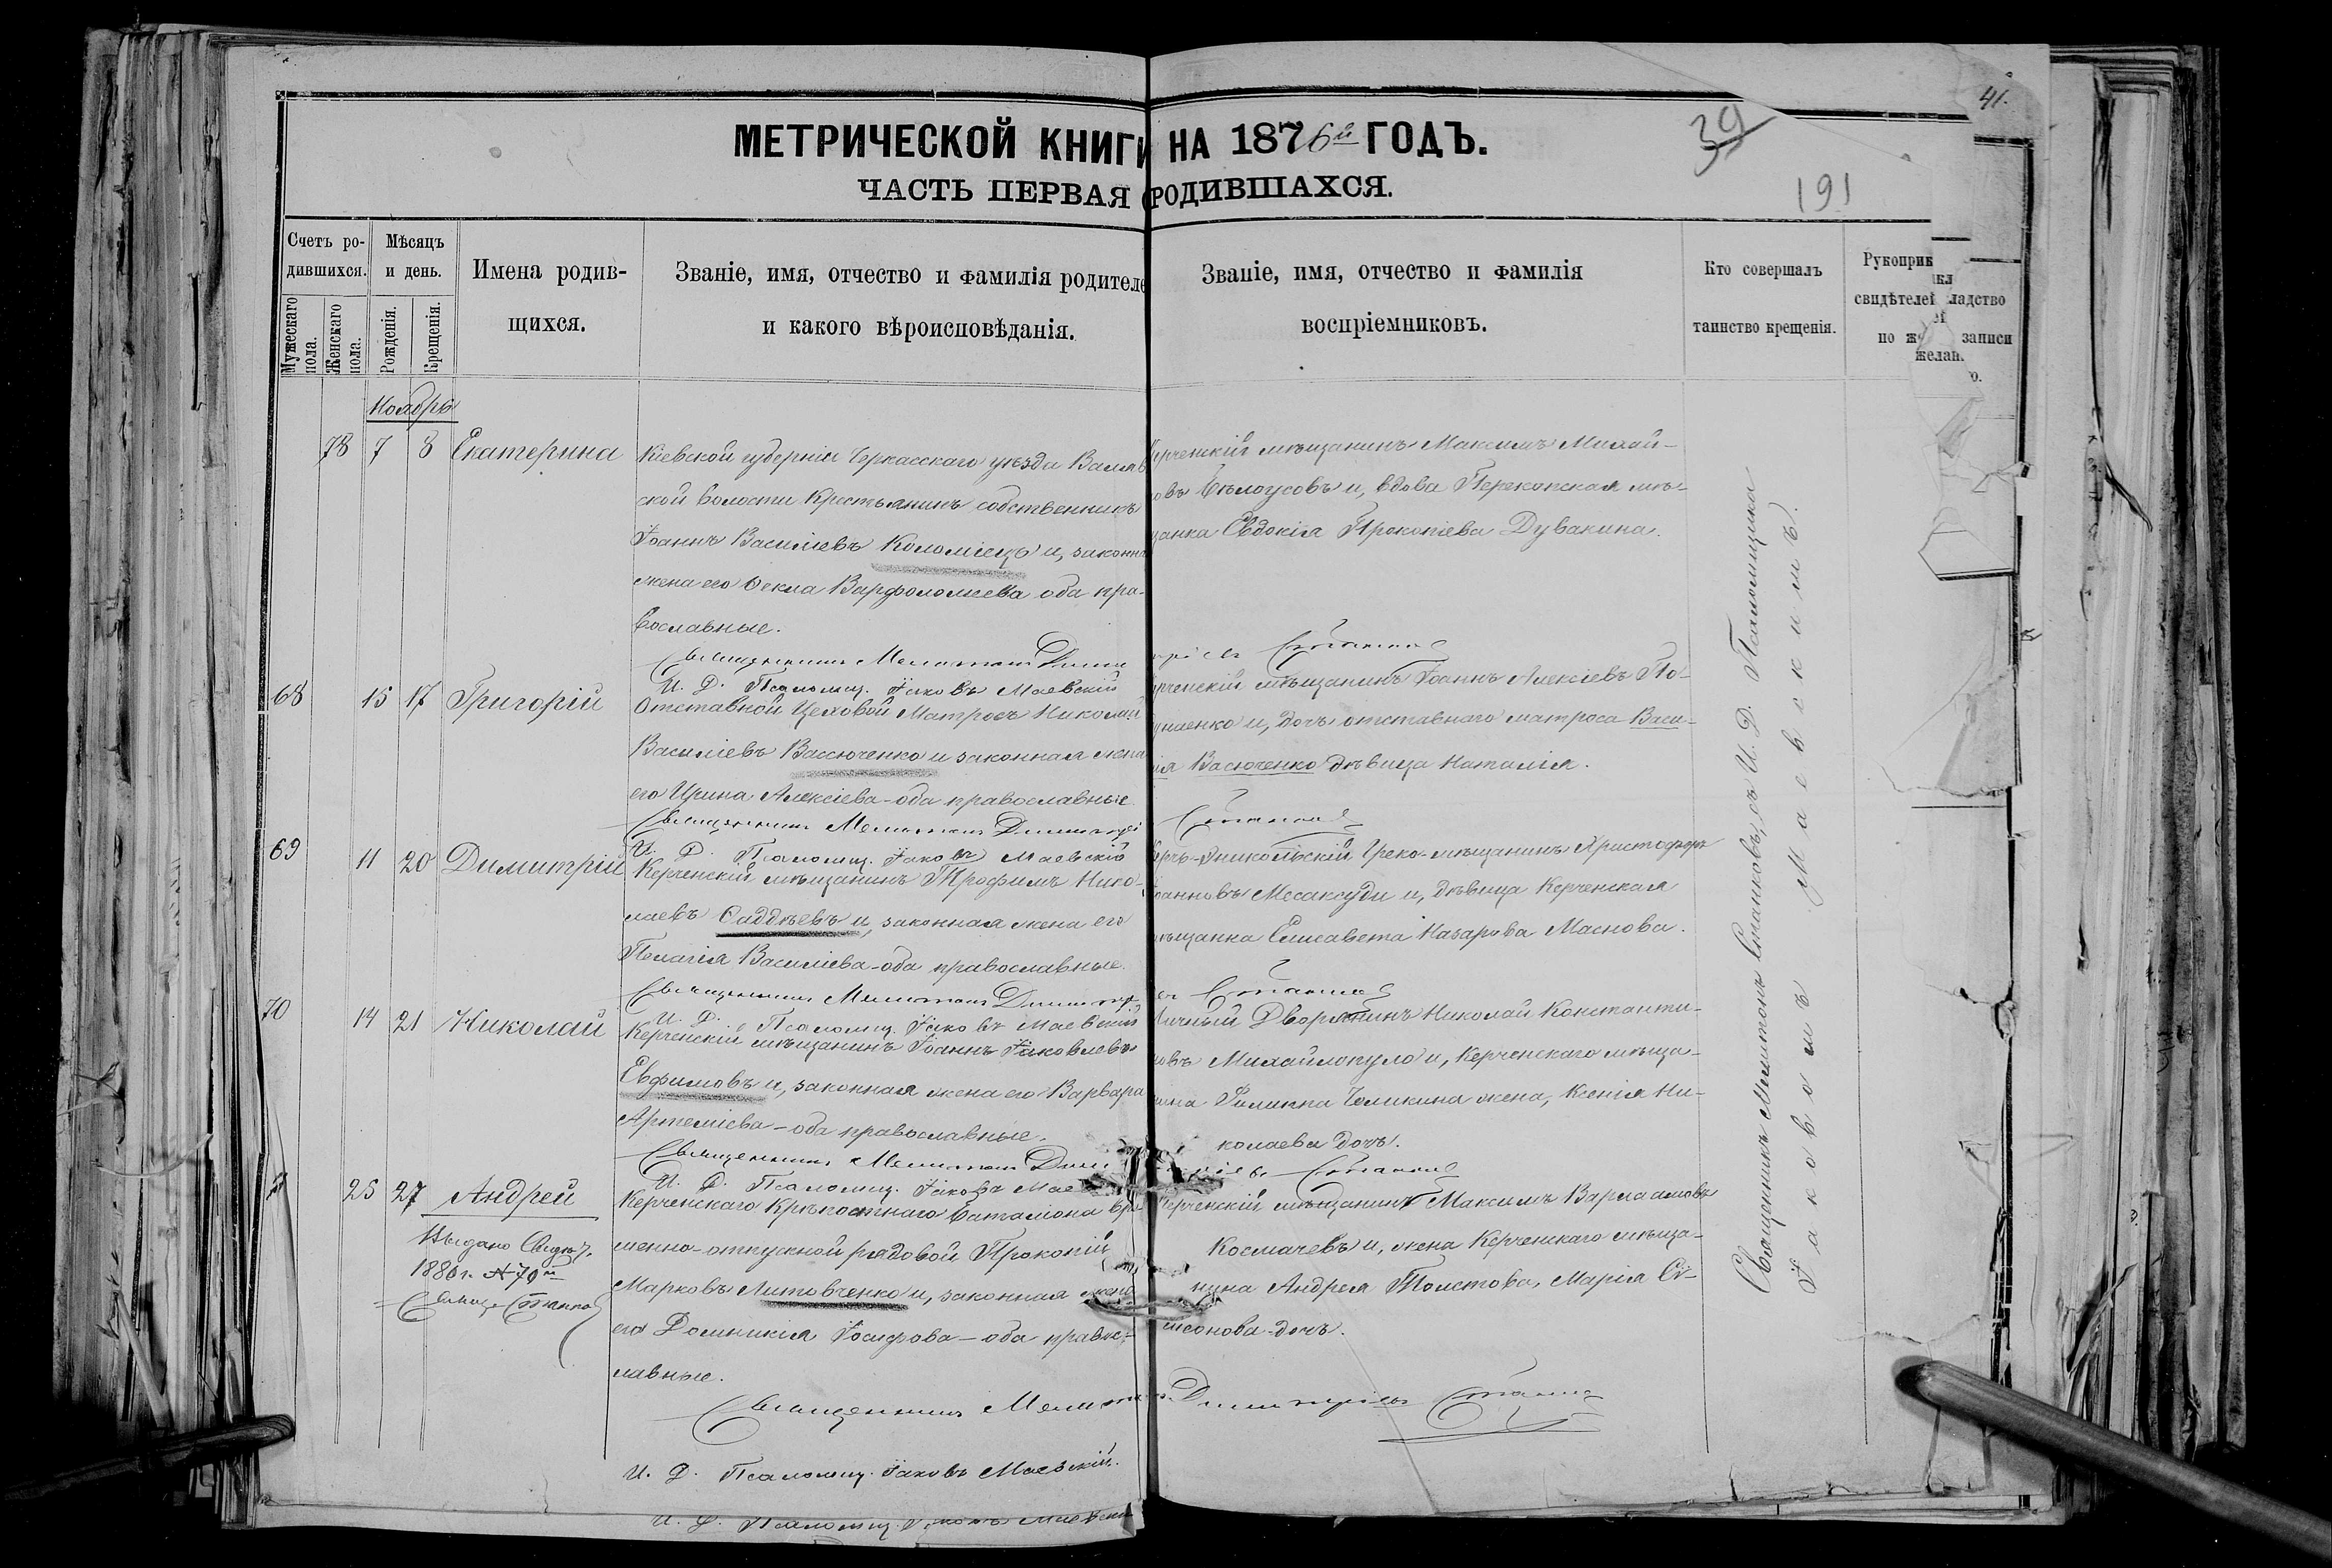 МЕТРИЧЕСКОЙ КНИГИ НА 1876й ГОДЪ.
ЧАСТЬ ПЕРВАЯ РОДИВШАХСЯ.
41.
39
191
Счетъ ро-
дившихся.
Мужескаго пола.
Женскаго пола.
Мѣсяцъ
и день.
Рожденія.
Крещенія.
Имена родив-
щихся.
Званіе, имя, отчество и фамилія родителе
и какого вѣроисповѣданія.
Званіе, имя, отчество и фамилія
воспріемниковъ.
Кто совершалъ
таинство крещенія.
Рукоприк
свидѣтелей
ладство
записи
по
желан
Ноябрь
78 7 8 Екатерина
Кіевской губерніи Черкасскаго уѣзда
ской волости Крестьянинъ собственникъ
Іоаннъ Василіевъ Коломіецъ и, законн
жена его Ѳекла Варфоломеева оба пра-
вославные.
Священникъ Мелитонъ Дими
И. Д. Псаломщ. Іаковъ Маевскій
ерченскій мѣщанинъ Максимъ Михай-
овъ Бѣлоусовъ и, вдова Перекопская мѣ-
щанка Евдокія Прокопіева Дувакина.
68 15 17 Григорій
Отставной Цеховой Матросъ Николай
Василіевъ Вассюченко и законная жена
его Ирина Алексіева - оба православные
Священникъ Мелитонъ Димитрі
И. Д. Псаломщ. Іаковъ Маевскій
рченскій мѣщанинъ Іоаннъ Алексіевъ По-
енко и, дочь отставнаго матроса Васи-
ія Васюченко дѣвица Наталія.
69 11 20 Димитрій
Керченскій мѣщанинъ Трофимъ Нико-
лаевъ Ѳаддѣевъ и, законная жена его
Пелагія Василіева - оба православные.
Священникъ Мелитонъ Димитр
И. Д. Псаломщ. Іаковъ Маевскій
Греко-мѣщанинъ Христофоръ
оанновъ Месаксуди и, дѣвица Керченская
мѣщанка Елисавета Назарова Маснова.
70 14 21 Николай
Керченскій мѣщанинъ Іоаннъ Іаковлевъ
Евфимовъ и, законная жена его Варвара
Артеміева - оба православные.
Священникъ Мелитонъ Дими
И. Д. Псаломщ. Іаковъ Мае
Личный Дворянинъ Николай Константи-
новъ Михайлопуло и, Керченскаго мѣща-
нина Филиппа Чемикина жена, Ксенія Ни-
колаева дочь.
25 27 Андрей
Выдано Свидѣт.
1886 г. № 70м
Керченскаго Крѣпостнаго баталіона вре-
менно-отпускной рядовой Прокопій
Марковъ Литовченко и, законная жена
его Домникія Іосифова - оба правос-
лавные.
Священникъ Мелитонъ Димитріевъ
И. Д. Псаломщ. Іаковъ Маевскій.
Керченскій мѣщанинъ Максимъ Варлаамовъ
Космачевъ и, жена Керченскаго мѣща-
нина Андрея Толстова, Марія Сі-
меонова дочь.
Священникъ Мелитонъ Станковъ, съ И. Д. Псаломщика
Іаковомъ Маевскимъ.
И. Д. Псаломщ. Іаковъ Маевскі